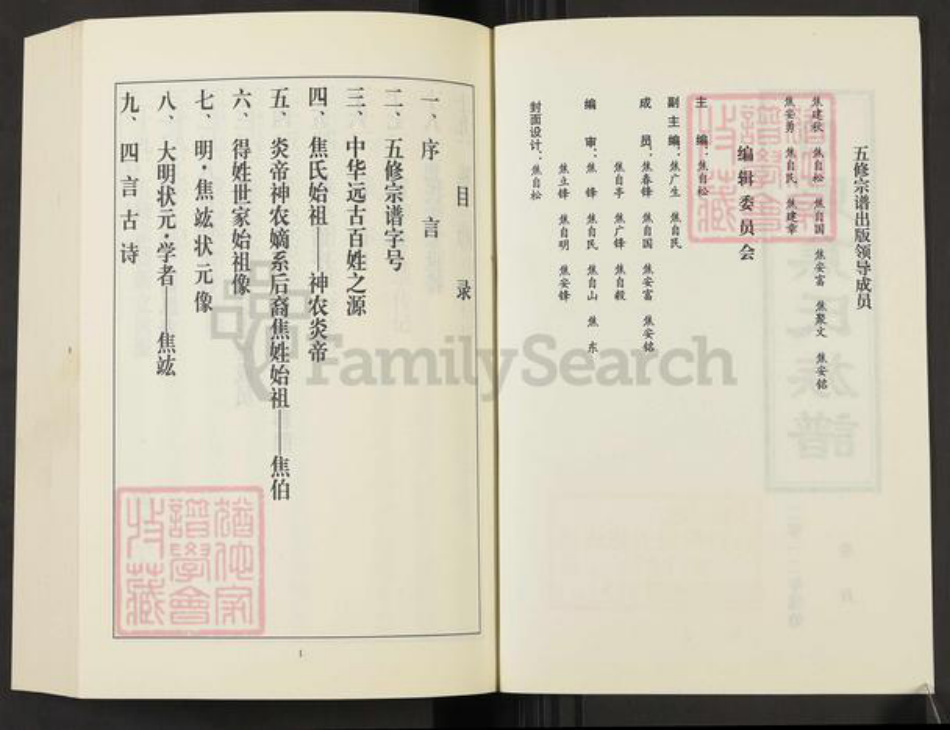 五修宗谱出版领导成员
焦建秋 焦自松 焦自国 焦安富 焦聚文 焦安铭
焦安勇 焦自民 焦建章
编辑委员会
主编：焦自松
副主编：焦广生 焦自民
成员：焦春锋 焦自国 焦安富 焦安铭
焦自亭 焦广锋 焦自毅
编审：焦锋 焦自民 焦自山 焦东
焦立锋 焦自明 焦安锋
封面设计：焦自松
目录
一、序言
二、五修宗谱字号
三、中华远古百姓之源
四、焦氏始祖——神农炎帝
五、炎帝神农嫡系后裔焦姓始祖——焦伯
六、得姓世家始祖像
七、明·焦竑状元像
八、大明状元·学者——焦竑
九、四言古诗
1
FamilySearch
譜學會
收藏